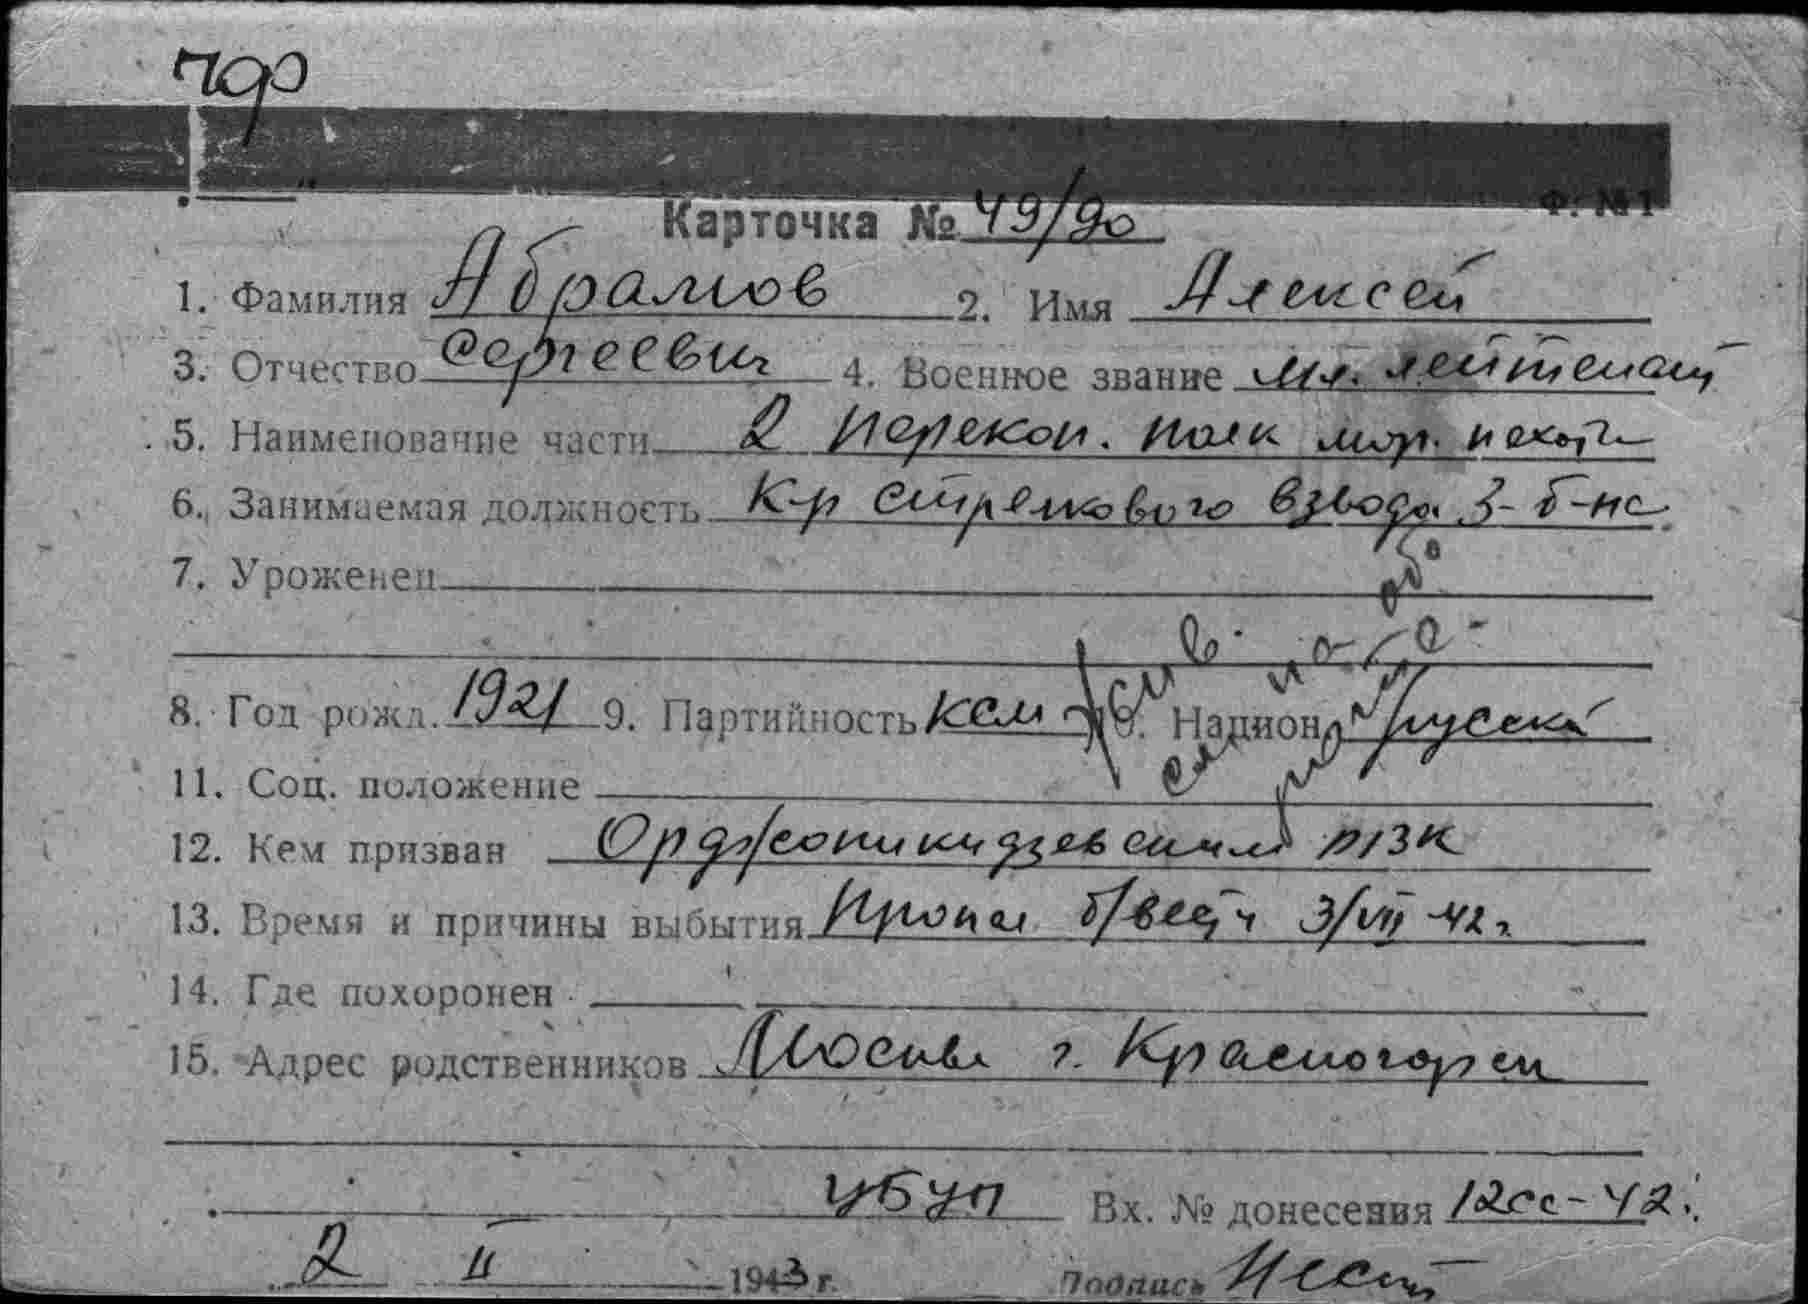 чф
Ф. №1
Карточка № 49/90
1. Фамилия Абрамов 2. Имя Алексей
3. Отчество Сергеевич 4. Военное звание мл. лейтенант
5. Наименование части 2 Перекоп. полк мор. пехоты
6. Занимаемая должность К-р стрелкового взвода 3-б-на
7. Уроженец
8. Год рожд. 1921 9. Партийность КСМ 10. Национ. русск
11. Соц. положение
12. Кем призван Орджоникидзевским РВК
13. Время и причины выбытия Пропал б/вести 3/VII-42г
14. Где похоронен
15. Адрес родственников Москва г. Красногорск
УБУП Вх. № донесения 12сс-42г.
2 II 1943 г. Подпись